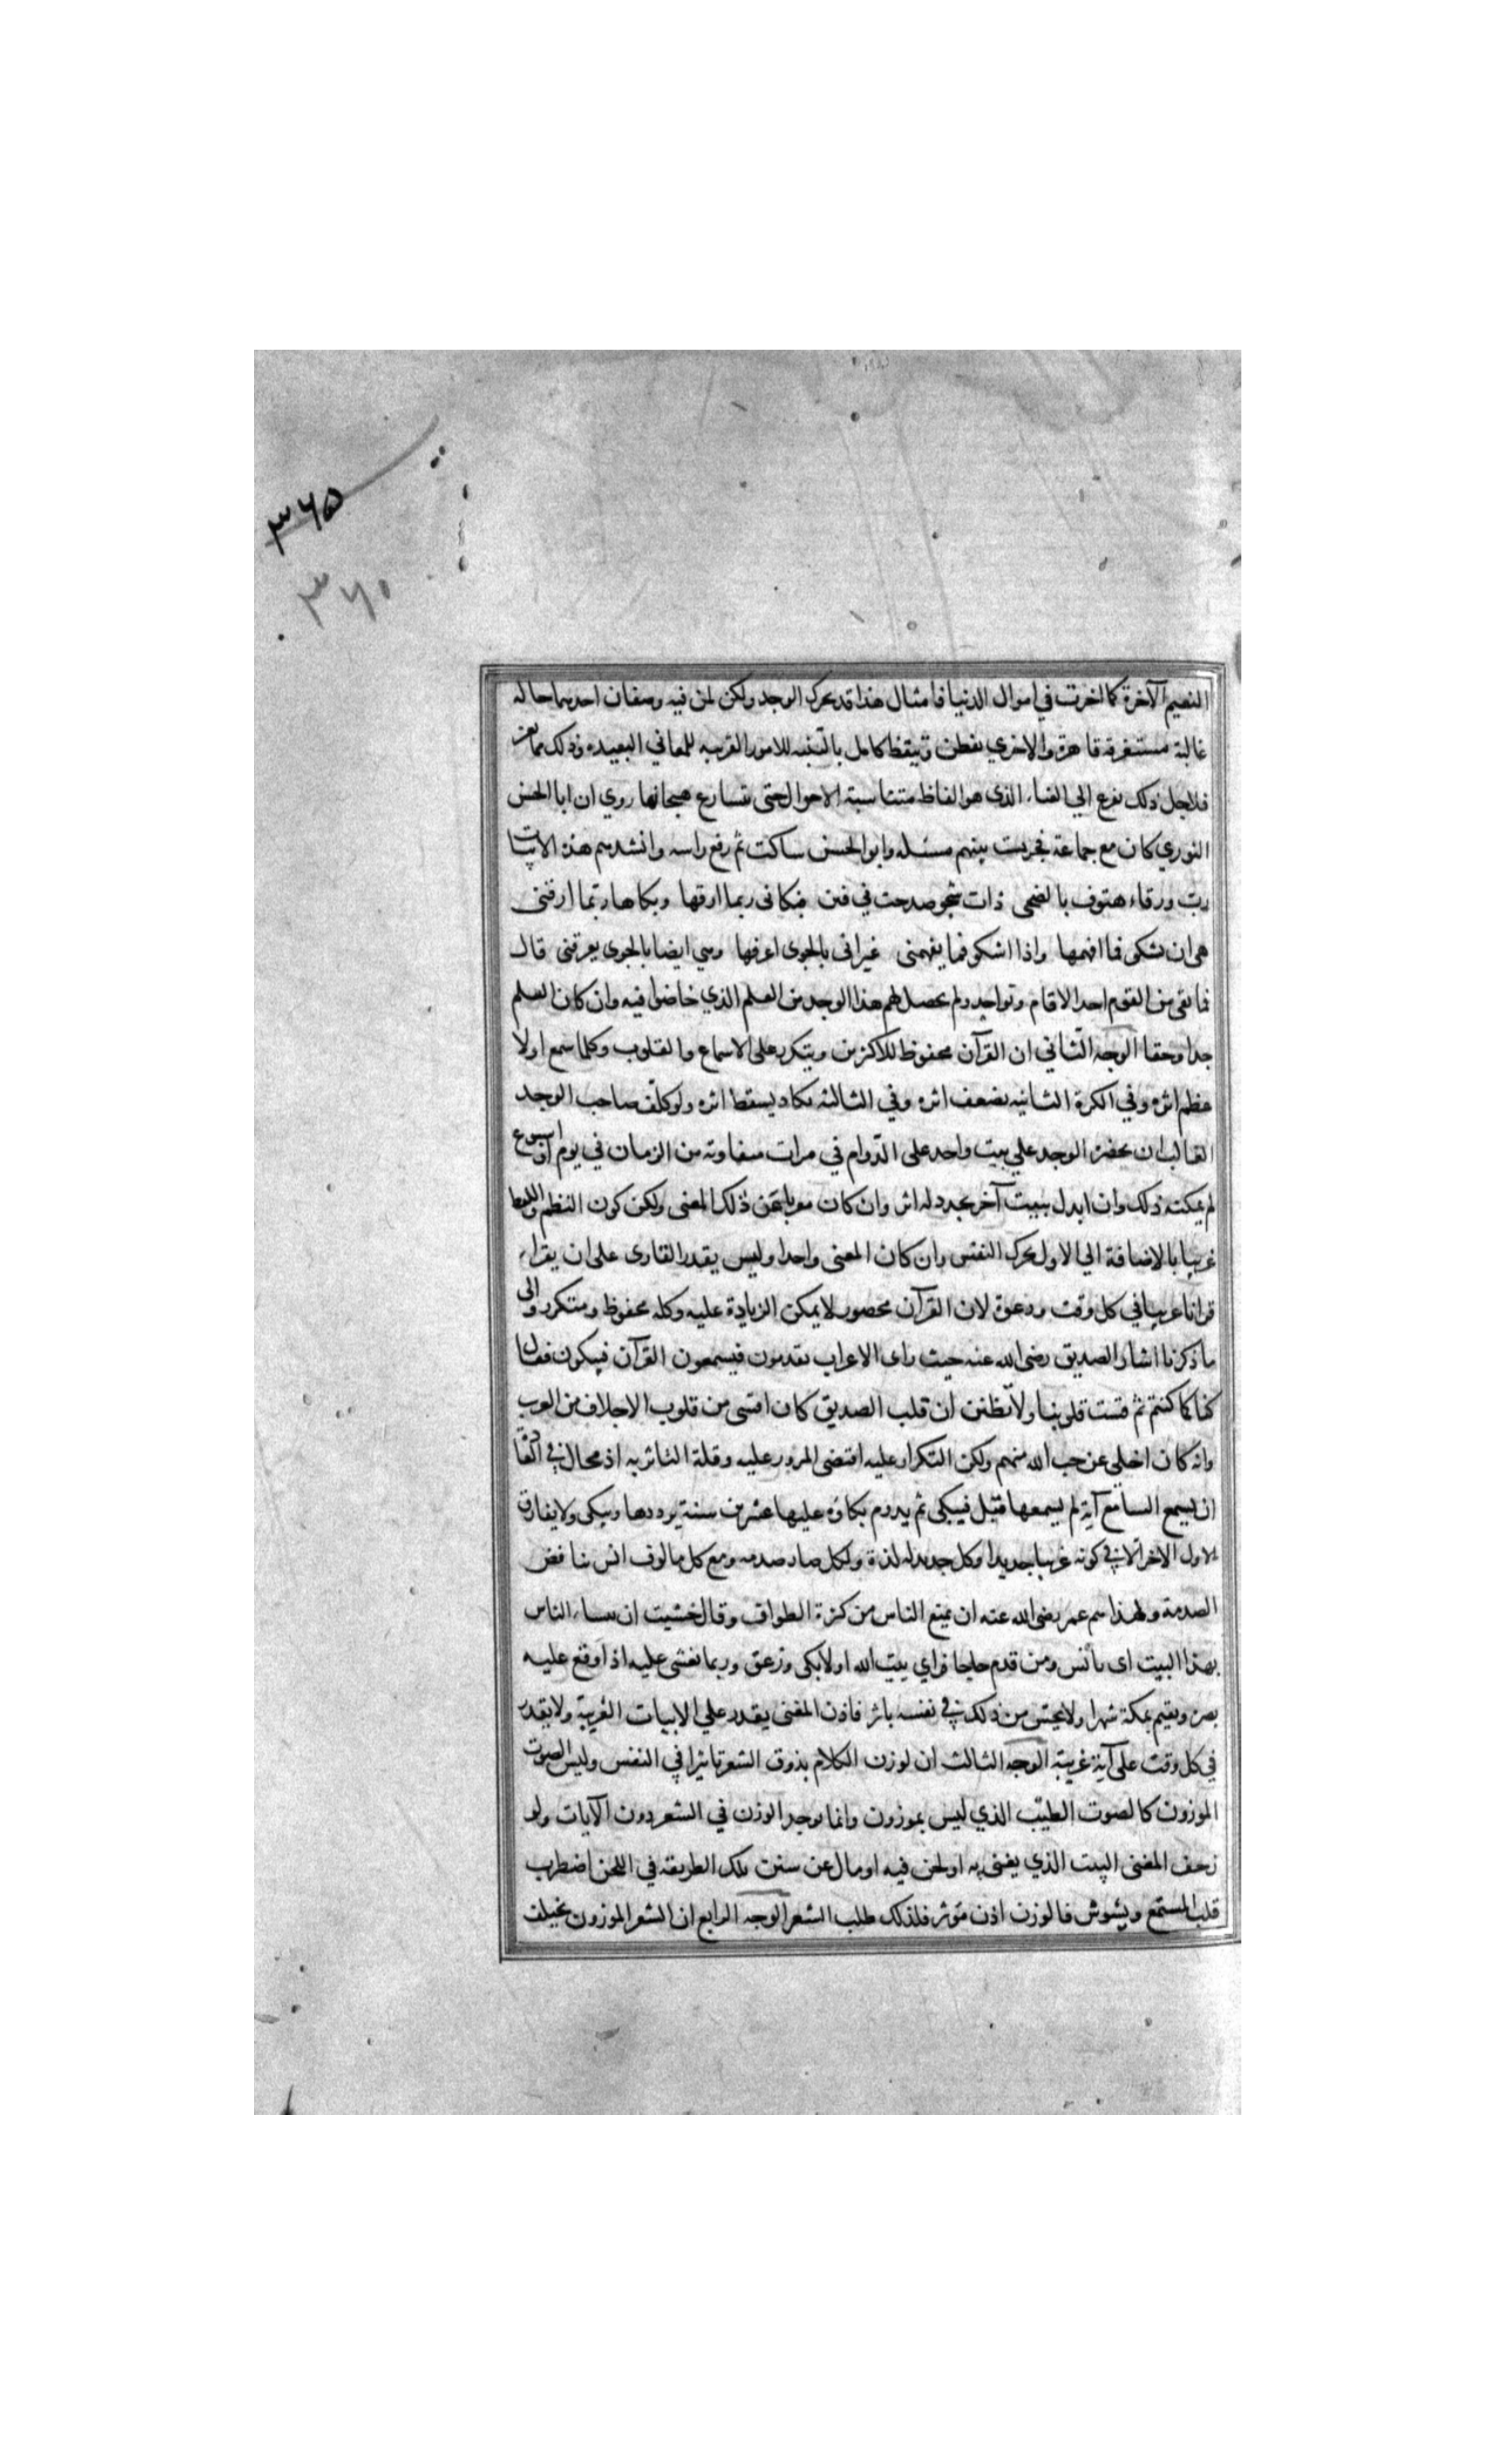 ٣٦٥
٣٦٠
النعيم الآخرة كما اخرت في اموال الدنيا فامثال هذا قد يحرك الوجد ولكن لمن فيه وصفان احدهما حاله
غالبة مستغرقة قاهرة والاخري تفطن وتيقظ كامل بالتنبه للامور القريبه للمعاني البعيده وذلك مما يعز
فلاجل ذلك يفزع الي الغناء الذي هو الفاظ متناسبة الاحوال حتى تتسارع هيجانها روي ان ابا الحسن
النوري كان مع جماعة فجريت بينهم مسئله وابو الحسن ساكت ثم رفع راسه وانشدهم هذه الابيات
رب ورقاء هتوف بالضحى ذات شجو صدحت في فنن فبكائى ربما ارقها وبكاها ربما ارقنى
هى ان تشكى فما افهمها واذا اشكو فما يفهمنى غير انى بالجوى اعرفها وهي ايضا بالجوى يعرفنى قال
فما بقى من القوم احد الا قام وتواجد ولم يحصل لهم هذا الوجد من العلم الذي خاضوا فيه وان كان العلم
جدا وحقا الوجه الثاني ان القرآن محفوظ للاكثرين ويتكرر على الاسماع والقلوب وكلما سمع اولا
عظم اثره وفي الكرة الثانيه يضعف اثره وفي الثالثة يكاد يسقط اثره ولو كلف صاحب الوجد
الغالب ان يحضر الوجد علي بيت واحد على الدوام في مرات متفاوته من الزمان في يوم او اسبوع
لم يمكنه ذلك وان ابدل ببيت آخر يجدد له اثر وان كان معربا عن ذلك المعنى ولكن كون النظم واللفظ
غريبا بالاضافة الي الاول يحرك النفس وان كان المعنى واحدا وليس يقدر القارى على ان يقراء
قرانا غريبا في كل وقت ودعوة لان القرآن محصور لا يمكن الزيادة عليه وكله محفوظ ومتكرر والى
ما ذكرنا اشار الصديق رضى الله عنه حيث راى الاعراب يقدمون فيسمعون القرآن فيبكون فقال
كنا كما كنتم ثم قست قلوبنا ولا تظنن ان قلب الصديق كان اقسى من قلوب الاجلاف من العرب
وانه كان اخلى عن حب الله منهم ولكن التكرار عليه اقتضى المرور عليه وقلة التاثر به اذ محال في
ان يسمع السامع آية لم يسمعها قبل فيبكى ثم يدوم بكاؤه عليها عشرين سنة يرددها ويبكى ولا يفارق
الاول الاخر الا في كونه غريبا جديدا وكل جديد له لذة ولكل صدمه ومع كل مالوف انس يناقض
الصدمة ولهذا هم عمر رضى الله عنه ان يمنع الناس من كثرة الطواف وقال خشيت ان الناس
بهذا البيت اى يأنس ومن قدم حاجا فراي بيت الله اولا بكى وزعق وربما يغشى عليه اذا وقع عليه
بصره ويقيم بمكة شهرا ولا يحس من ذلك في نفسه باثر فاذن المغنى يقدر علي الابيات الغريبة ولا يقدر
في كل وقت على آية غريبة الوجه الثالث ان لوزن الكلام بذوق الشعر تاثيرا في النفس وليس الصوت
الموزون كالصوت الطيب الذي ليس بموزون وانما يوجد الوزن في الشعر دون الآيات ولو
زحف المغنى البيت الذي يغنى به او لحن فيه او مال عن سنن تلك الطريقه في اللحن اضطرب
قلب المستمع ويشوش فالوزن اذن مؤثر فلذلك طلب الشعر الوجه الرابع ان الشعر الموزون